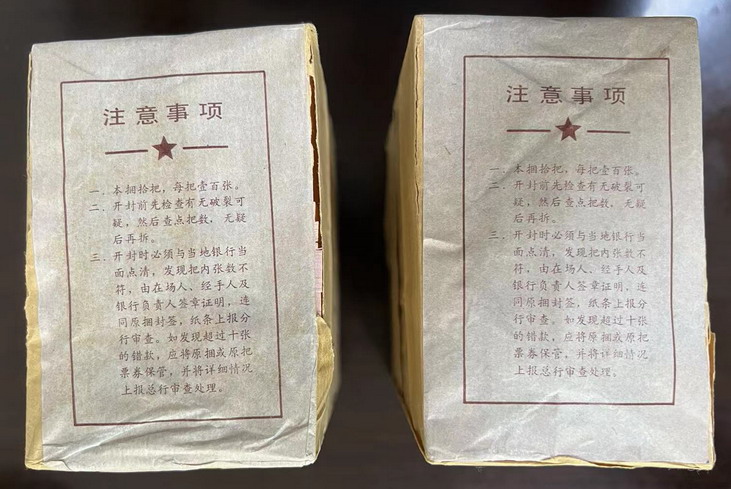 注意事项
一、本捆拾把，每把壹百张。
二、开封前先检查有无破裂可
疑，然后查点把数，无疑
后再拆。
三、开封时必须与当地银行当
面点清，发现把内张数不
符，由在场人、经手人及
银行负责人签章证明，连
同原捆封签，纸条上报分
行审查。如发现超过十张
的错款，应将原捆或原把
票券保管，并将详细情况
上报总行审查处理。
注意事项
一、本捆拾把，每把壹百张。
二、开封前先检查有无破裂可
疑，然后查点把数，无疑
后再拆。
三、开封时必须与当地银行当
面点清，发现把内张数不
符，由在场人、经手人及
银行负责人签章证明，连
同原捆封签，纸条上报分
行审查。如发现超过十张
的错款，应将原捆或原把
票券保管，并将详细情况
上报总行审查处理。